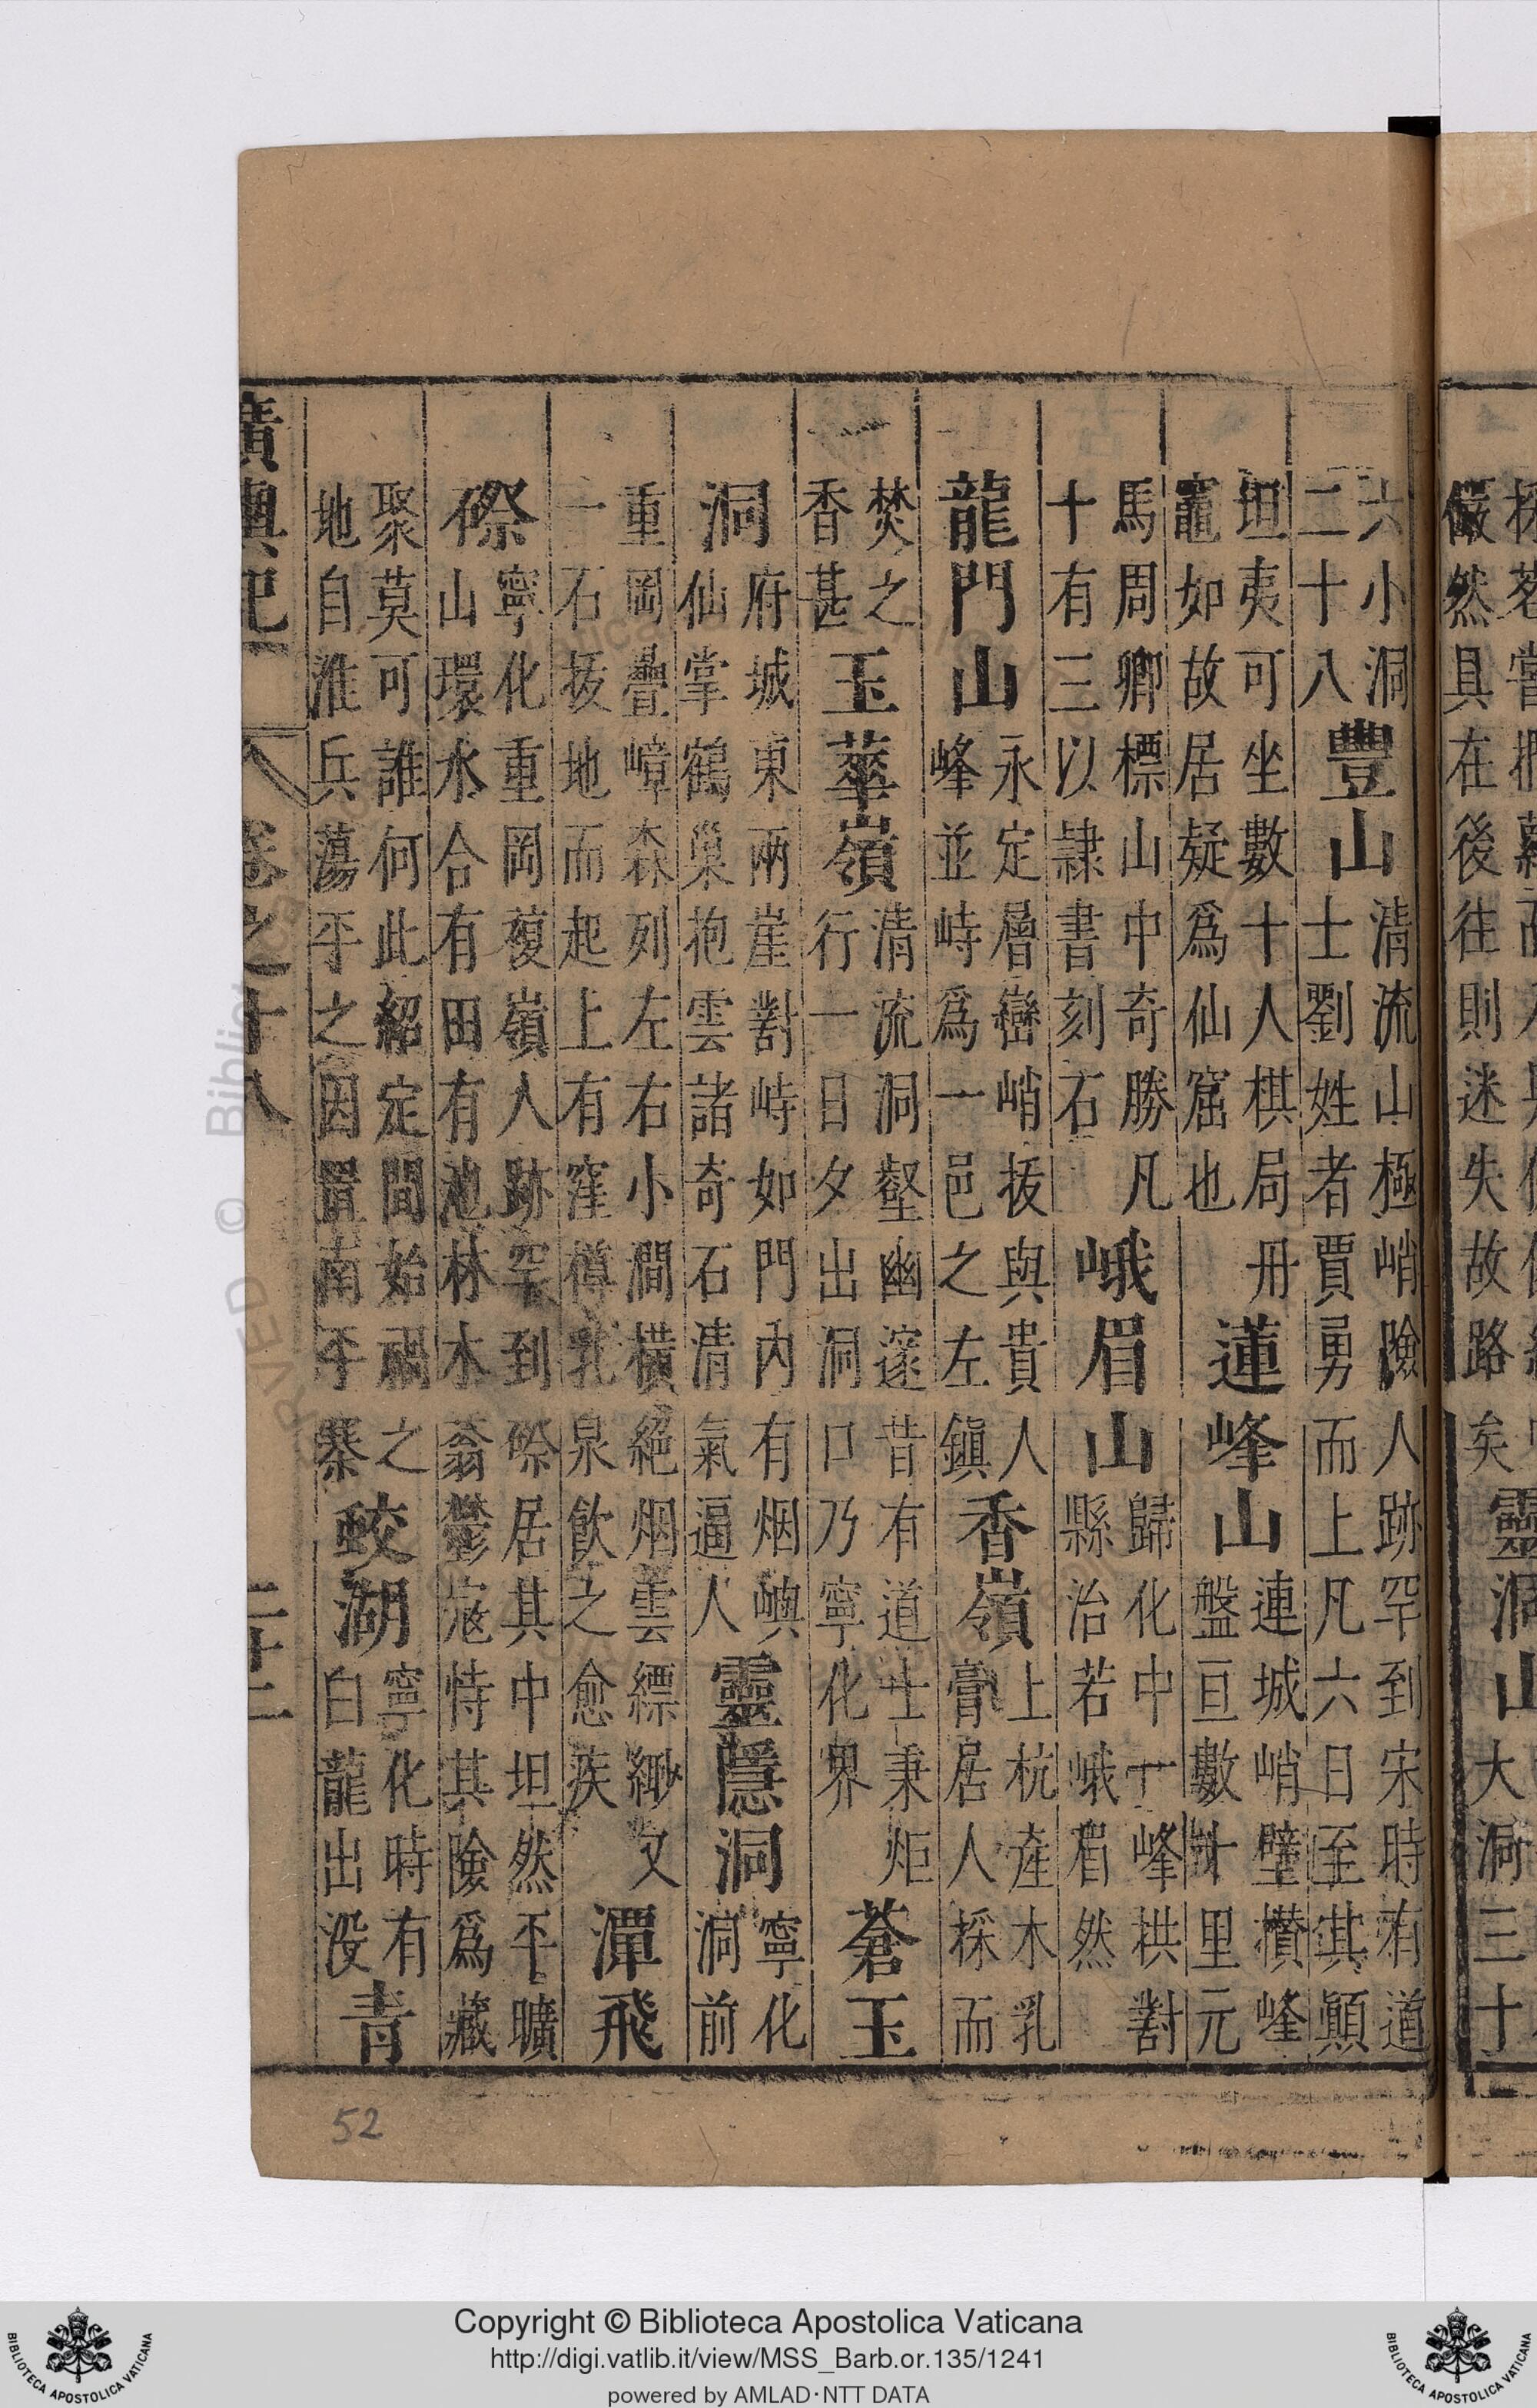 儼然具在後往則迷失故路矣
靈洞山
大洞三十
六小洞
二十八
豐山
清流山極峭險人跡罕到宋時有道
士劉姓者賈勇而上凡六日至其顛
坦夷可坐數十人棋局丹
竈如故居疑爲仙窟也
蓮峰山
連城峭壁攢峰
盤亘數十里元
馬周卿標山中奇勝凡
十有三以隸書刻石
峨眉山
歸化中一峰拱對
縣治若峨眉然
龍門山
永定層巒峭拔與貴人
峰並峙爲一邑之左鎮
香嶺
上杭產木乳
膏居人採而
焚之
香甚
玉華嶺
清流洞壑幽邃昔有道士秉炬
行一日夕出洞口乃寧化界
蒼玉
洞
府城東兩崖對峙如門內有烟嶼
仙掌鶴巢抱雲諸奇石清氣逼人
靈隱洞
寧化
洞前
重岡疊嶂森列左右小澗橫絕烟雲縹緲又
一石拔地而起上有窪樽乳泉飲之愈疾
潭飛
磜
寧化重岡複嶺人跡罕到磜居其中坦然平曠
山環水合有田有池林木蓊鬱寇恃其險爲藏
聚莫可誰何此紹定間始禍之
地自淮兵蕩平之因置南平寨
蛟湖
寧化時有
白龍出没
青
廣輿記 卷之十八 二十二
52
Copyright © Biblioteca Apostolica Vaticana
http://digi.vatlib.it/view/MSS_Barb.or.135/1241
powered by AMLAD·NTT DATA
BIBLIOTECA APOSTOLICA VATICANA
BIBLIOTECA APOSTOLICA VATICANA